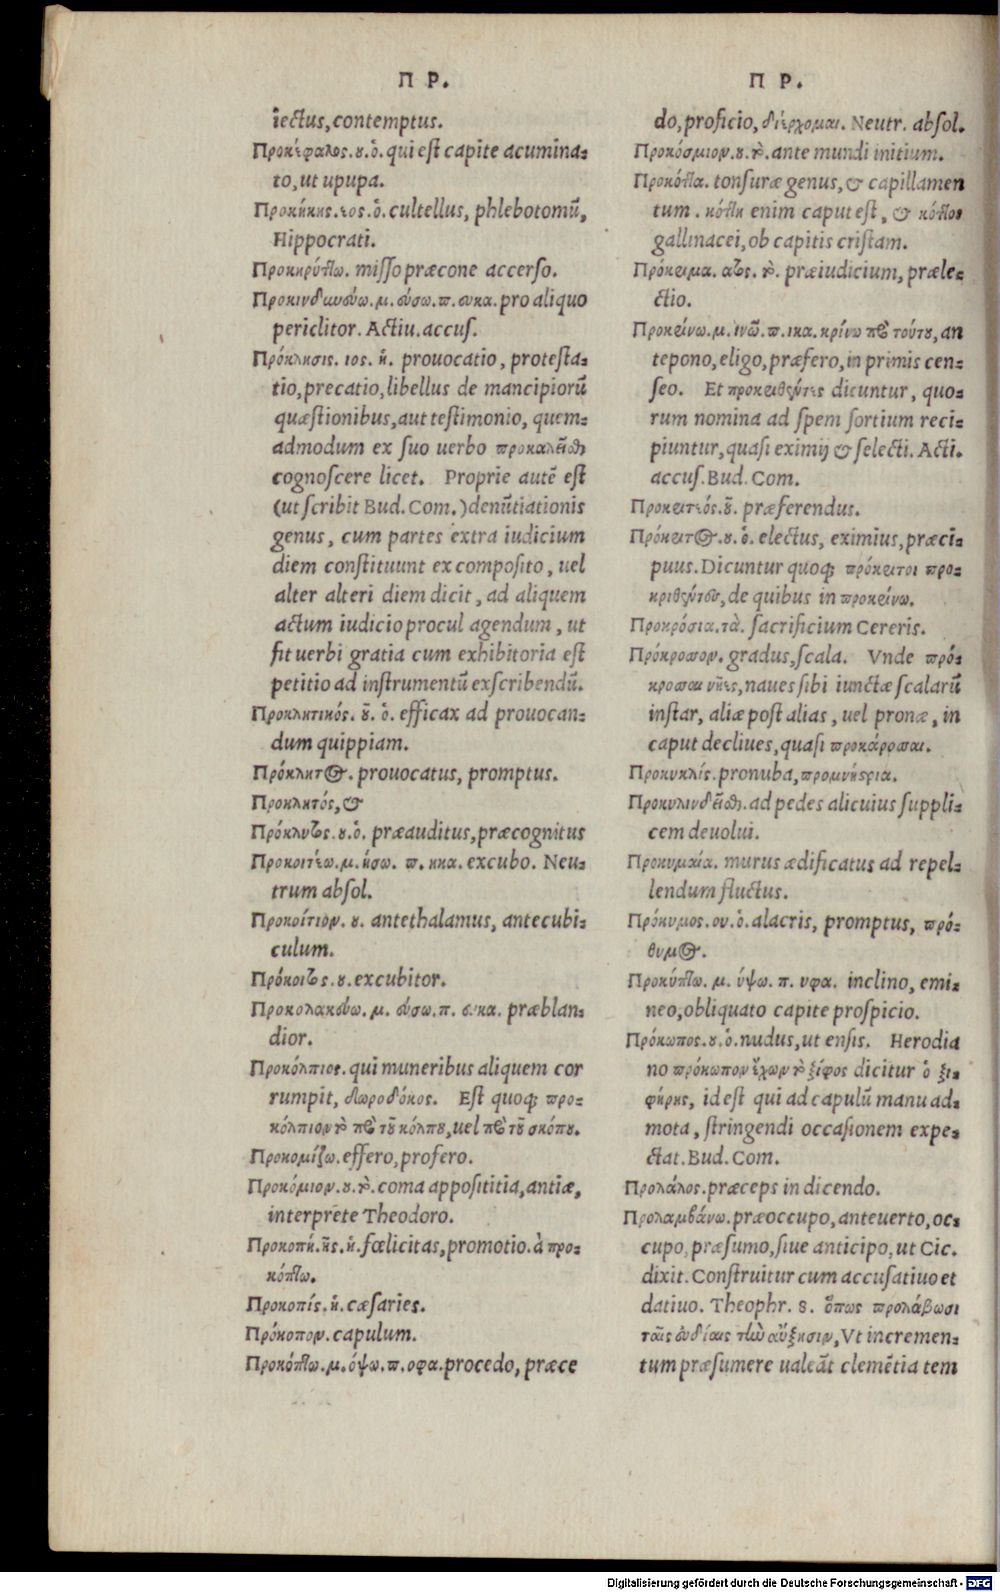 Π Ρ.
iectus, contemptus.
Προκέφαλος.ου.ὁ. qui est capite acumina-
to, ut upupa.
Προκήκης.ιος.ὁ. cultellus, phlebotomū,
Hippocrati.
Προκηρύττω. misso præcone accerso.
Προκινδυνεύω.μ.εύσω.π.ευκα. pro aliquo
periclitor. Actiu. accus.
Πρόκλησις. ιος. ἡ. prouocatio, protesta-
tio, precatio, libellus de mancipiorū
quæstionibus, aut testimonio, quem-
admodum ex suo uerbo προκαλεῖσθαι
cognoscere licet. Proprie autē est
(ut scribit Bud. Com.) denūtiationis
genus, cum partes extra iudicium
diem constituunt ex composito, uel
alter alteri diem dicit, ad aliquem
actum iudicio procul agendum, ut
fit uerbi gratia cum exhibitoria est
petitio ad instrumentū exscribendū.
Προκλητικός. οῦ. ὁ. efficax ad prouocan-
dum quippiam.
Πρόκλητος. prouocatus, promptus.
Προκλητός, &
Πρόκλυτος.ου.ὁ. præauditus, præcognitus
Προκοιτέω.μ.ήσω. π. ηκα. excubo. Neu-
trum absol.
Προκοίτιον. ου. antethalamus, antecubi-
culum.
Πρόκοιτος.ου excubitor.
Προκολακεύω. μ. εύσω. π. ευκα. præblan-
dior.
Προκόλπιος. qui muneribus aliquem cor
rumpit, δωροδόκος. Est quoq; προ-
κόλπιον τὸ πρὸ τοῦ κόλπου, uel πρὸ τοῦ σκόπου.
Προκομίζω. effero, profero.
Προκόμιον.ου.τὸ. coma appositita, antiæ,
interprete Theodoro.
Προκοπή.ῆς.ἡ. fœlicitas, promotio. à προ-
κόπτω.
Προκοπίς.ἡ. cæsaries.
Πρόκοπον. capulum.
Προκόπτω.μ.όψω.π.οφα. procedo, præce
Π Ρ.
do, proficio, διέρχομαι. Neutr. absol.
Προκόσμιον.ου.τὸ. ante mundi initium.
Προκόττα. tonsuræ genus, & capillamen
tum. κόττη enim caput est, & κόττος
gallinacei, ob capitis cristam.
Πρόκριμα. ατος. τὸ. præiudicium, præle-
ctio.
Προκρίνω.μ.ινῶ.π.ικα. κρίνω πρὸ τούτου, an
tepono, eligo, præfero, in primis cen-
seo. Et προκριθέντες dicuntur, quo-
rum nomina ad spem sortium reci-
piuntur, quasi eximij & selecti. Acti.
accus. Bud. Com.
Προκριτέος.οῦ. præferendus.
Πρόκριτος.ου.ὁ. electus, eximius, præci-
puus. Dicuntur quoq; πρόκριτοι προ-
κριθέντων, de quibus in προκρίνω.
Προκρόσια.τὰ. sacrificium Cereris.
Πρόκροσσον. gradus, scala. Vnde πρό-
κροσσαι νῆες, naues sibi iunctæ scalarū
instar, aliæ post alias, uel pronæ, in
caput decliues, quasi προκάροσσαι.
Προκυκλίς. pronuba, προμνήστρια.
Προκυλινδεῖσθαι. ad pedes alicuius suppli-
cem deuolui.
Προκυμαία. murus ædificatus ad repel-
lendum fluctus.
Πρόκυμος.ου.ὁ. alacris, promptus, πρό-
θυμος.
Προκύπτω. μ. ύψω. π. υφα. inclino, emi-
neo, obliquato capite prospicio.
Πρόκωπος.ου.ὁ. nudus, ut ensis. Herodia
no πρόκωπον ἔχων τὸ ξίφος dicitur ὁ ξι-
φήρης, id est qui ad capulū manu ad-
mota, stringendi occasionem expe-
ctat. Bud. Com.
Προλάλος. præceps in dicendo.
Προλαμβάνω. præoccupo, anteuerto, oc-
cupo, præsumo, siue anticipo, ut Cic.
dixit. Construitur cum accusatiuo et
datiuo. Theophr. 8. ὅπως προλάβωσι
ταῖς εὐδίαις τὴν αὔξησιν, Vt incremen-
tum præsumere ualeāt clemētia tem
Digitalisierung gefördert durch die Deutsche Forschungsgemeinschaft - DFG